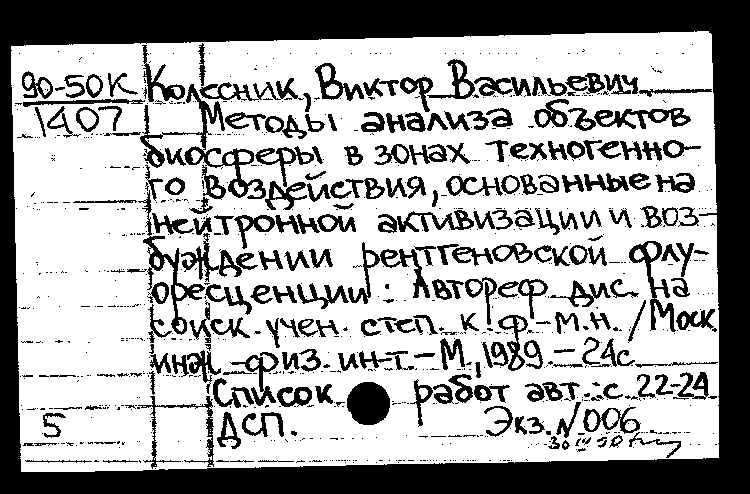 90-50К Колесник, Виктор Васильевич.
1407 Методы анализа объектов
биосферы в зонах техногенно-
го воздействия, основанные на
нейтронной активизации и воз-
буждении рентгеновской флу-
оресценции: Автореф. дис. на
соиск. учен. степ. к. ф.-м.н. / Моск.
инж.-физ. ин-т.-М., 1989.-24с.
Список работ авт.: с. 22-24
5 ДСП. Экз. N 006.